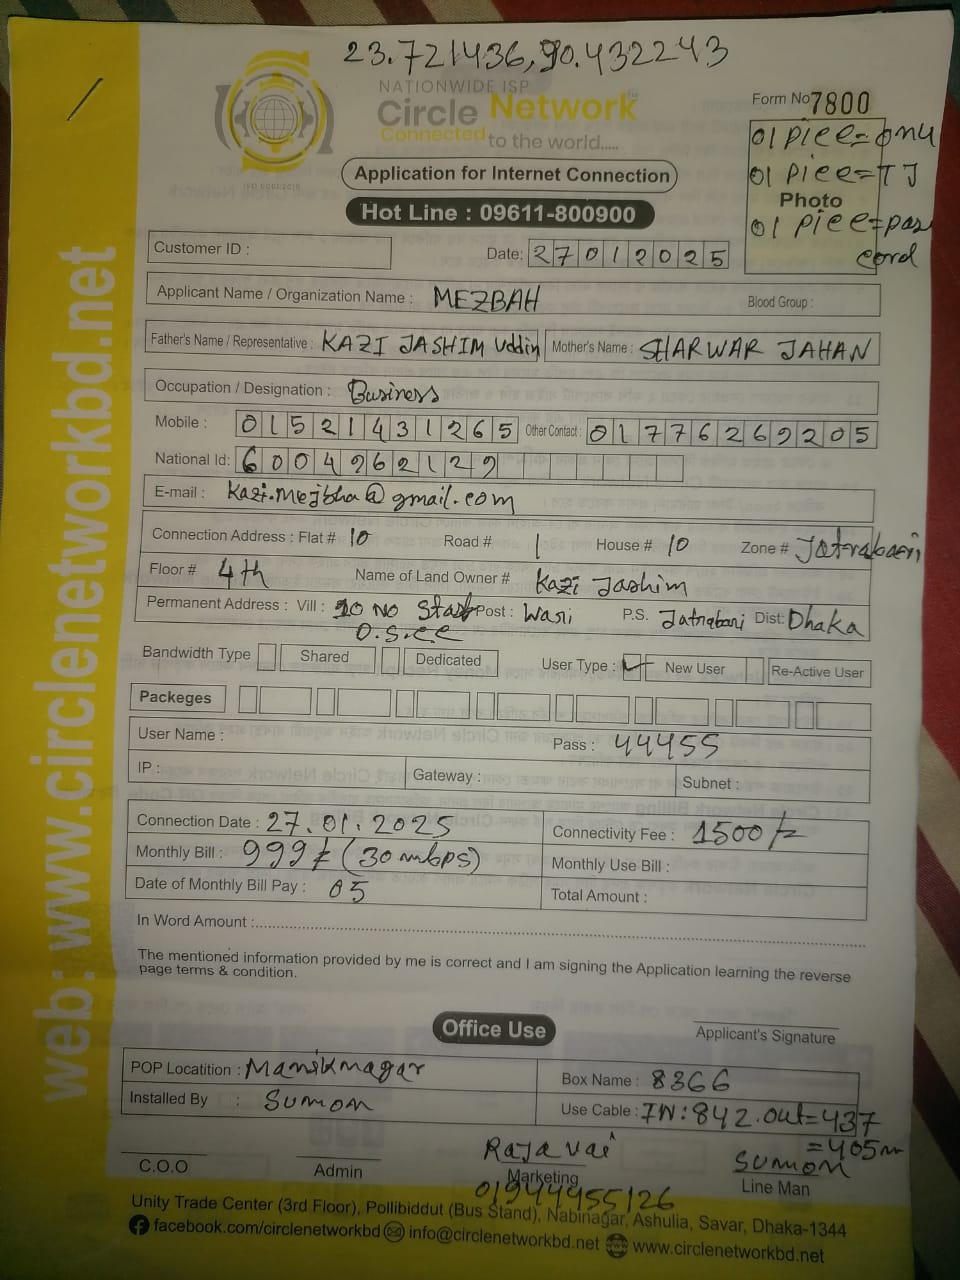 23.721436,90.432243
NATIONWIDE ISP
Circle Network
Connected to the world.....
ISO 9001:2015
Form No 7800
01 piee=onu
01 piee=TJ
Photo
01 piee=pas
cord
Application for Internet Connection
Hot Line : 09611-800900
Customer ID :
Date: 27012025
Applicant Name / Organization Name : MEZBAH Blood Group :
Father's Name / Representative : KAZI JASHIM Uddin Mother's Name : SHARWAR JAHAN
Occupation / Designation : Business
Mobile : 01521431265 Other Contact : 01776269205
National Id: 6004962129
E-mail : kazi.mejbha@gmail.com
Connection Address : Flat # 10 Road # 1 House # 10 Zone # Jatrabari
Floor # 4th Name of Land Owner # Kazi Jashim
Permanent Address : Vill : 10 NO Staf Post : Wari P.S. Jatrabari Dist: Dhaka
O.s.c.c
Bandwidth Type Shared Dedicated User Type : ✓ New User Re-Active User
Packeges
User Name : Pass : 44455
IP : Gateway : Subnet :
Connection Date : 27.01.2025 Connectivity Fee : 1500/=
Monthly Bill : 999/= (30 mbps) Monthly Use Bill :
Date of Monthly Bill Pay : 05 Total Amount :
In Word Amount :
The mentioned information provided by me is correct and I am signing the Application learning the reverse
page terms & condition.
Applicant's Signature
Office Use
POP Locatition : Maniknagar Box Name : 8366
Installed By : Sumon Use Cable : IN:842.out=437
=405m
Raja vai Sumon
C.O.O Admin Marketing Line Man
01944455126
Unity Trade Center (3rd Floor), Pollibiddut (Bus Stand), Nabinagar, Ashulia, Savar, Dhaka-1344
facebook.com/circlenetworkbd info@circlenetworkbd.net www.circlenetworkbd.net
web: www.circlenetworkbd.net